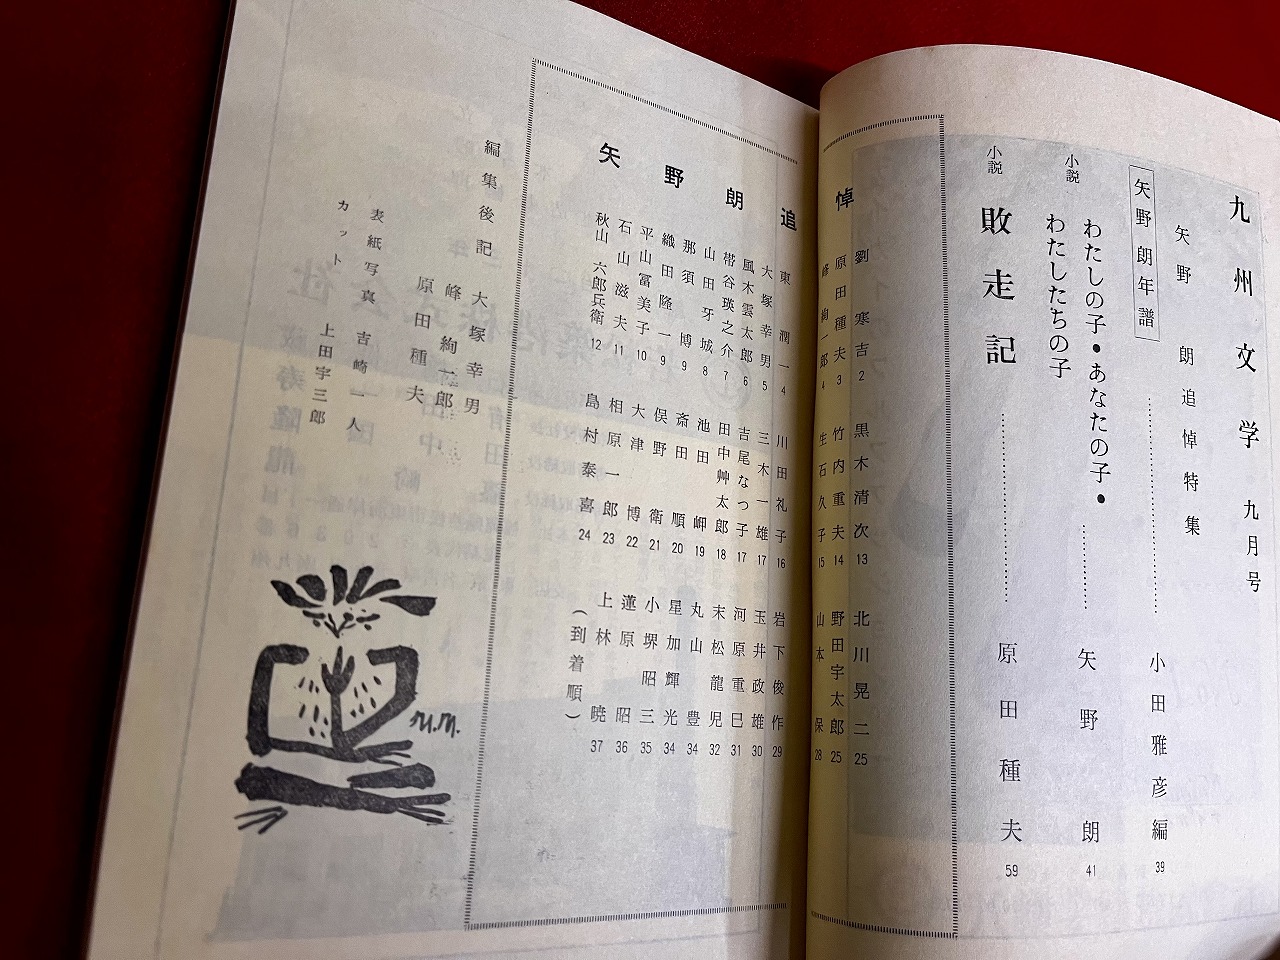 九州文学 九月号
矢野 朗追悼特集
矢野朗年譜 小田雅彦編 39
小説 わたしの子・あなたの子・わたしたちの子 矢野 朗 41
小説 敗走記 原田種夫 59
矢野朗追悼
劉寒吉 2
原田種夫 3
峰絢一郎 4
東潤一 4
大塚幸男 5
風木雲太郎 6
帯谷瑛之介 7
山田牙城 8
那須博 9
織田隆一 9
平山冨美子 10
石山滋夫 11
秋山六郎兵衛 12
黒木清次 13
竹内重夫 14
生石久子 15
川田礼子 16
三木一雄 17
吉尾なつ子 17
田中艸太郎 18
池田岬 19
斎田順 20
俣野衛 21
大津博 22
相原一郎 23
島村泰喜 24
北川晃二 25
野田宇太郎 25
山本保 28
岩下俊作 29
玉井政雄 30
河原重巳 31
末松龍児 32
丸山豊 34
星加輝光 34
小堺昭三 35
蓮原昭 36
上林暁 37
(到着順)
編集後記 大塚幸男
峰絢一郎
原田種夫
表紙写真 吉崎一人
カット 上田宇三郎
M.M.